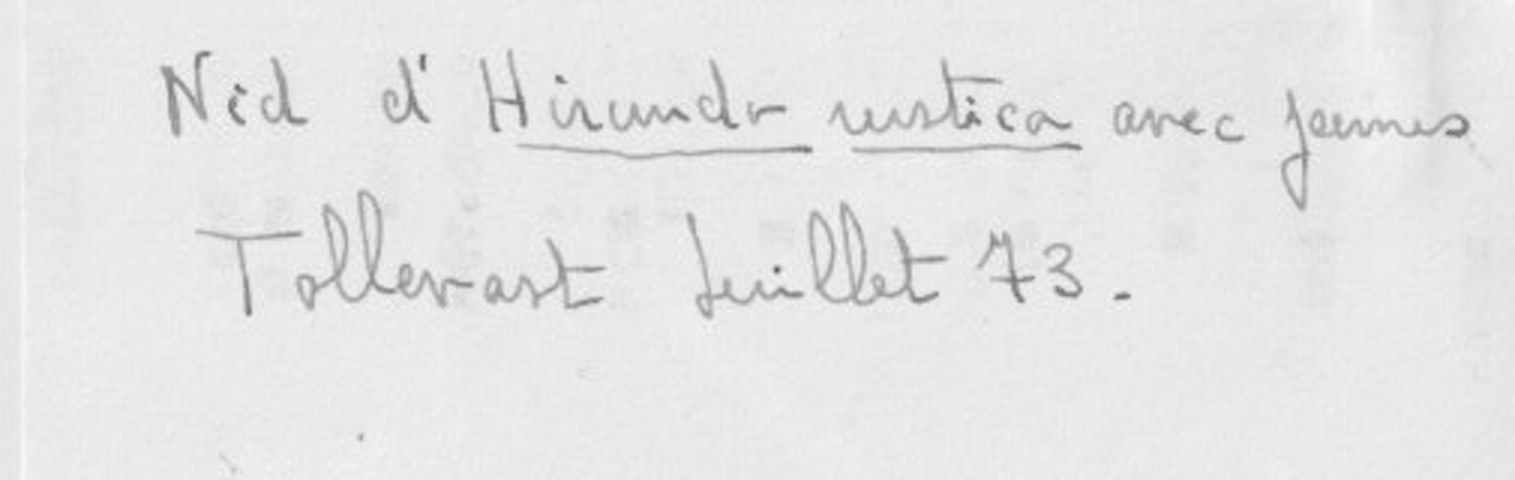 Nid d'Hirundo rustica avec jeunes
Tollevast Juillet 73.